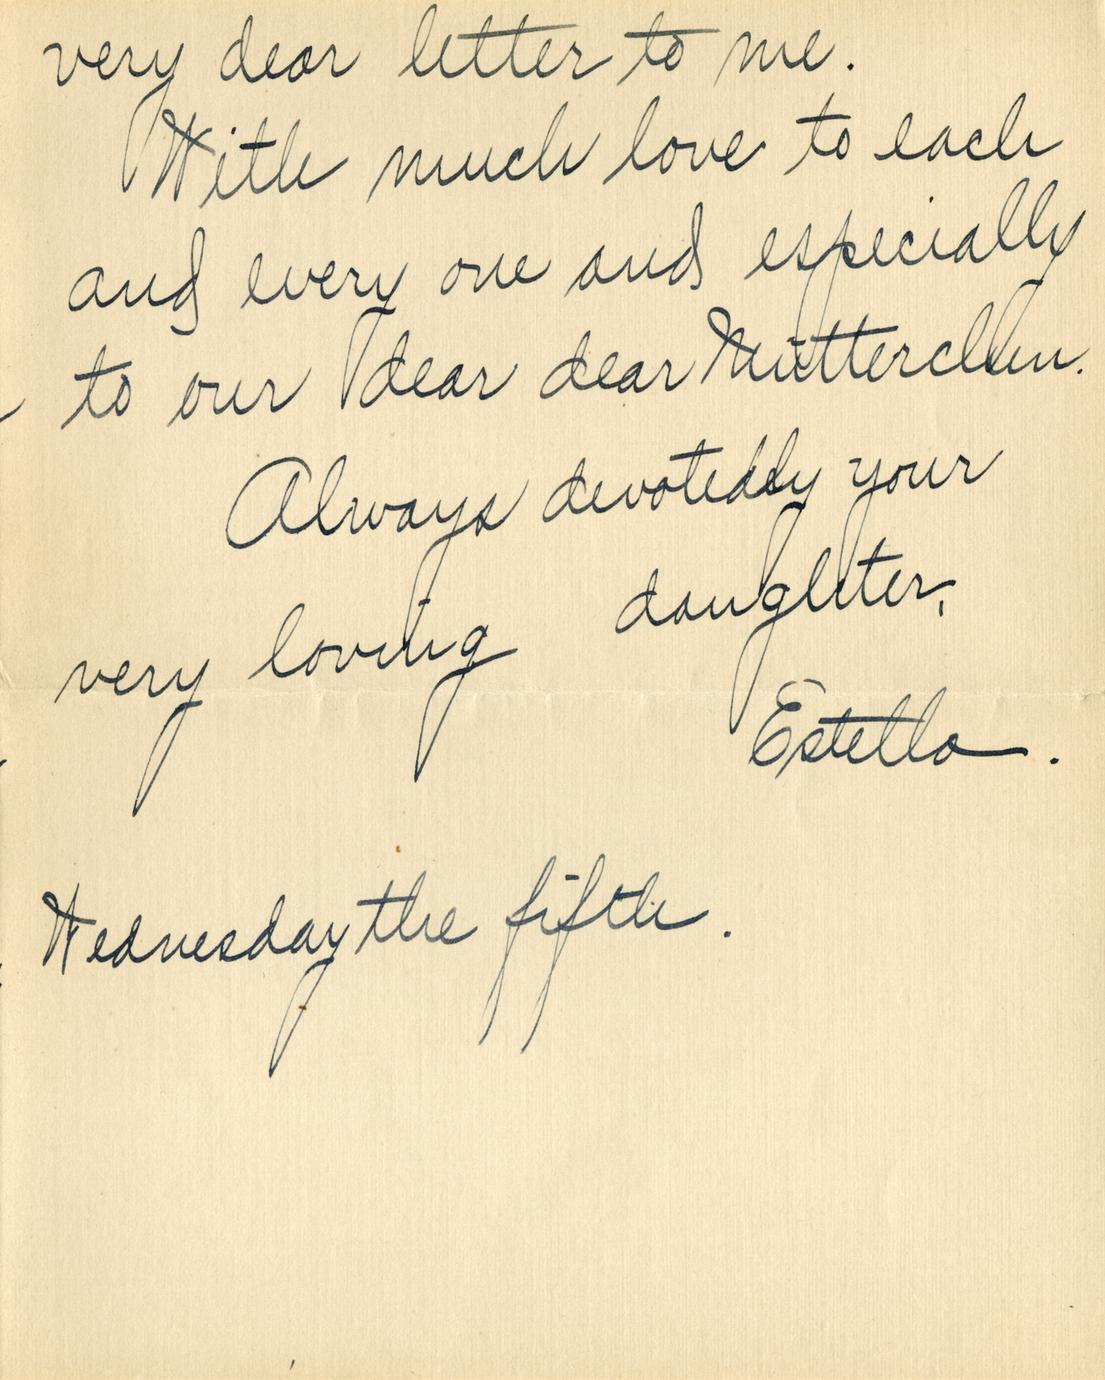 very dear letter to me.
With much love to each
and every one and especially
to our dear dear Mütterchen.
Always devotedly your
very loving daughter,
Estella.
Wednesday the fifth.